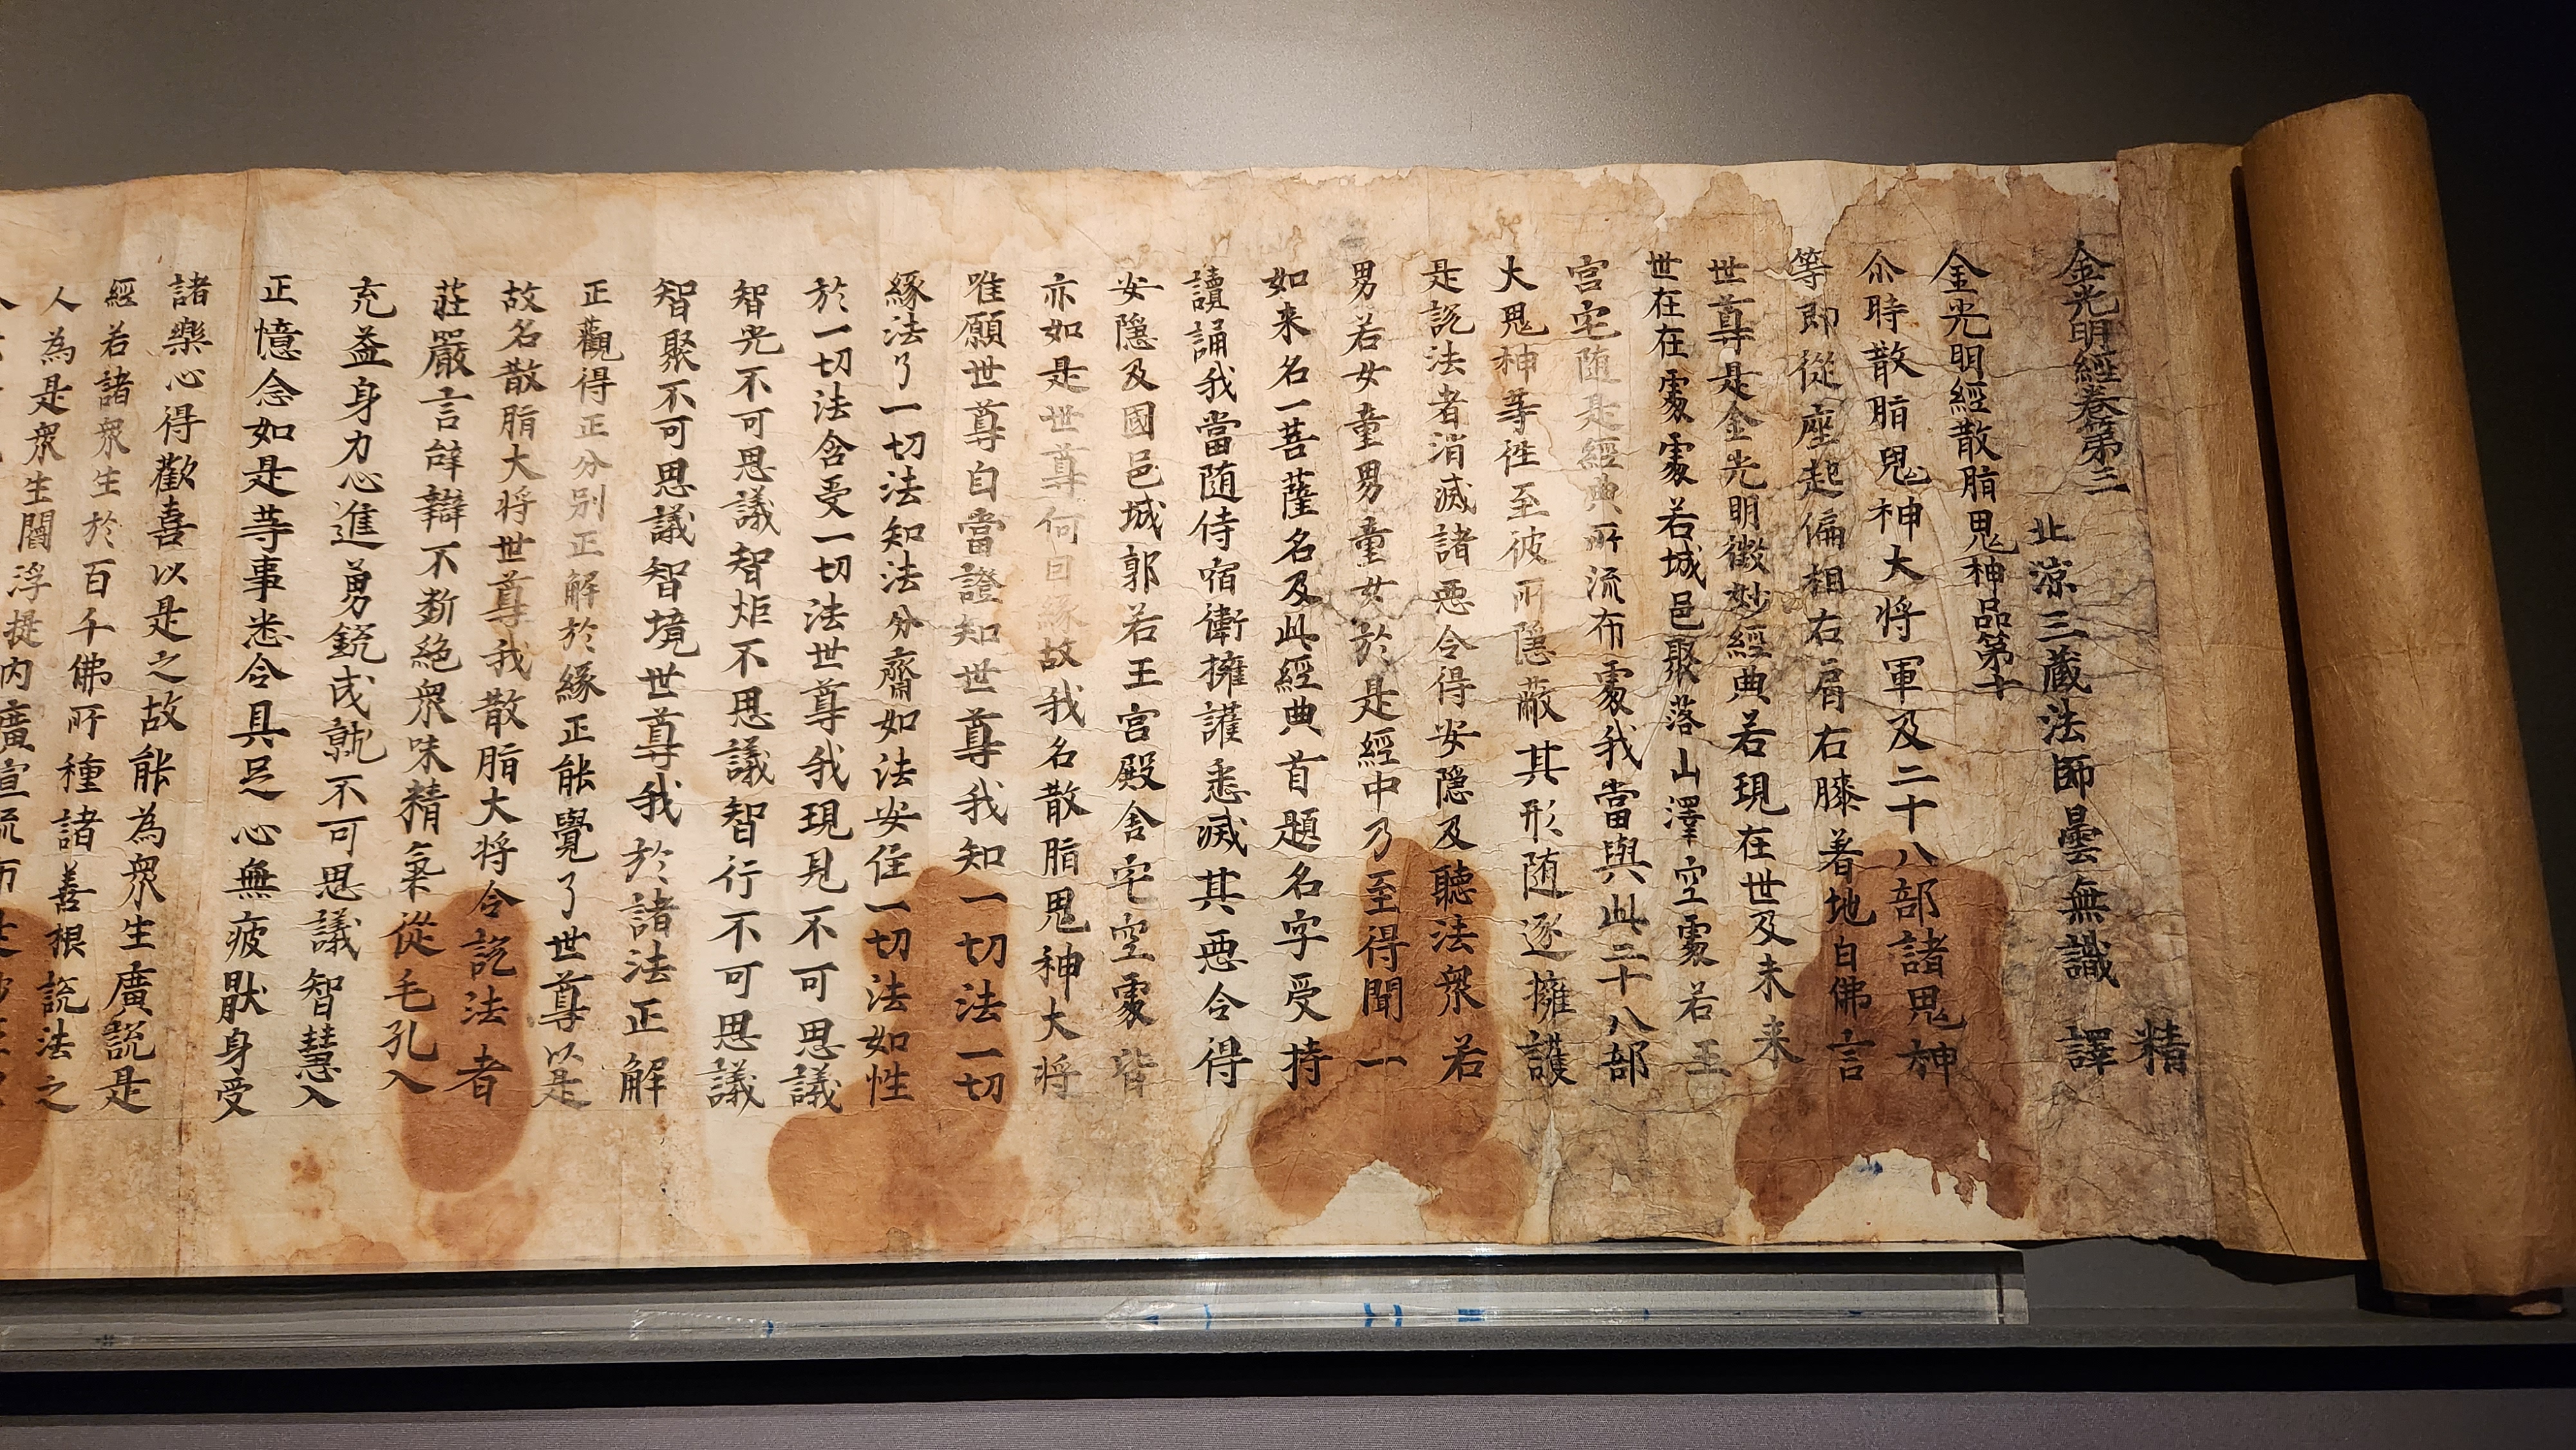 金光明經卷第三
精
北涼三藏法師曇無讖 譯
金光明經散脂鬼神品第十
尒時散脂鬼神大将軍及二十八部諸鬼神
等即從座起偏袒右肩右膝著地白佛言
世尊是金光明微妙經典若現在世及未来
世在在處處若城邑聚落山澤空處若王
宮宅随是經典所流布處我當與此二十八部
大鬼神等往至彼所隱蔽其形随逐擁護
是説法者消滅諸惡令得安隱及聽法衆若
男若女童男童女於是經中乃至得聞一
如来名一菩薩名及此經典首題名字受持
讀誦我當随侍宿衛擁護悉滅其惡令得
安隱及國邑城郭若王宮殿舍宅空處皆
亦如是世尊何因縁故我名散脂鬼神大将
唯願世尊自當證知世尊我知一切法一切
緣法了一切法知法分齊如法安住一切法如性
於一切法含受一切法世尊我現見不可思議
智光不可思議智炬不思議智行不可思議
智聚不可思議智境世尊我於諸法正解
正觀得正分别正解於緣正能覺了世尊以是
故名散脂大将世尊我散脂大将令説法者
莊嚴言辞辯不斷絕衆味精氣從毛孔入
充益身力心進勇銳成就不可思議智慧入
正憶念如是等事悉令具足心無疲猒身受
諸樂心得歡喜以是之故能為衆生廣説是
經若諸衆生於百千佛所種諸善根説法之
人為是衆生閻浮提内廣宣流布